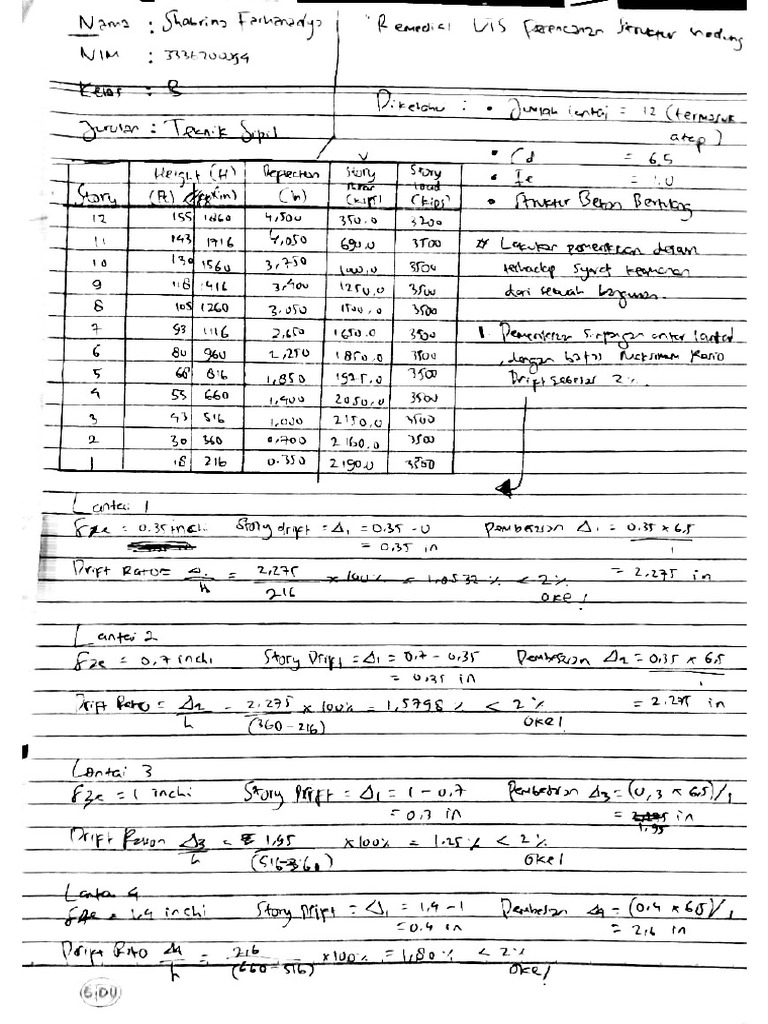 Nama : Shabrina Farhanadya
Remedial UTS Perencanaan Struktur Gedung
NIM :
Kelas : B
Jurusan : Teknik Sipil
Diketahui : • Jumlah lantai = 12 (termasuk atap)
• Cd = 6,5
• Ie = 1.0
• Struktur Beton Bertulang
Story Height (H) (ft) (in) Deflection (in) Story (kips) Story load (kips)
12 155 1860 4,500 350.0 3200
11 143 1716 4,050 690.0 3500
10 130 1560 3,750 1000.0 3500
9 118 1416 3,400 1250.0 3500
8 105 1260 3,050 1500.0 3500
7 93 1116 2,650 1650.0 3500
6 80 960 2,250 1850.0 3500
5 68 816 1,850 1925.0 3500
4 55 660 1,400 2050.0 3500
3 43 516 1,000 2150.0 3500
2 30 360 0,700 2160.0 3500
1 18 216 0.350 2190.0 3500
* Lakukan pemeriksaan desain
terhadap syarat keamanan
dari sebuah bangunan.
1. Pemeriksaan simpangan antar lantai
dengan batas maksimum rasio
Drift sebesar 2%.
Lantai 1
δxe = 0.35 inchi Story drift = Δ1 = 0.35 - 0 Pembesaran Δ1 = 0.35 x 6,5 / 1
= 0.35 in = 2,275 in
Drift Ratio = Δ1/H = 2,275/216 x 100% = 1,0532 % < 2%
oke!
Lantai 2
δ2e = 0,7 inchi Story Drift = Δ1 = 0,7 - 0,35 Pembesaran Δ2 = 0,35 x 6,5 / 1
= 0,35 in = 2.275 in
Drift Ratio = Δ2/h = 2.275/(360-216) x 100% = 1,5798 % < 2%
oke!
Lantai 3
δ3e = 1 inchi Story Drift = Δ1 = 1 - 0,7 Pembesaran Δ3 = (0,3 x 6,5)/1
= 0,3 in = 1,95 in
Drift Δ3/h = 1,95/(516-360) x 100% = 1.25% < 2%
oke!
Lantai 4
= 1.4 inchi Story Drift = Δ1 = 1,4 - 1 Pembesaran Δ4 = (0.4 x 6,5)/1
= 0.4 in = 2,6 in
Drift Ratio Δ4/h = 2,6/(660-516) x 100% = 1,80% < 2%
oke!
SiDU